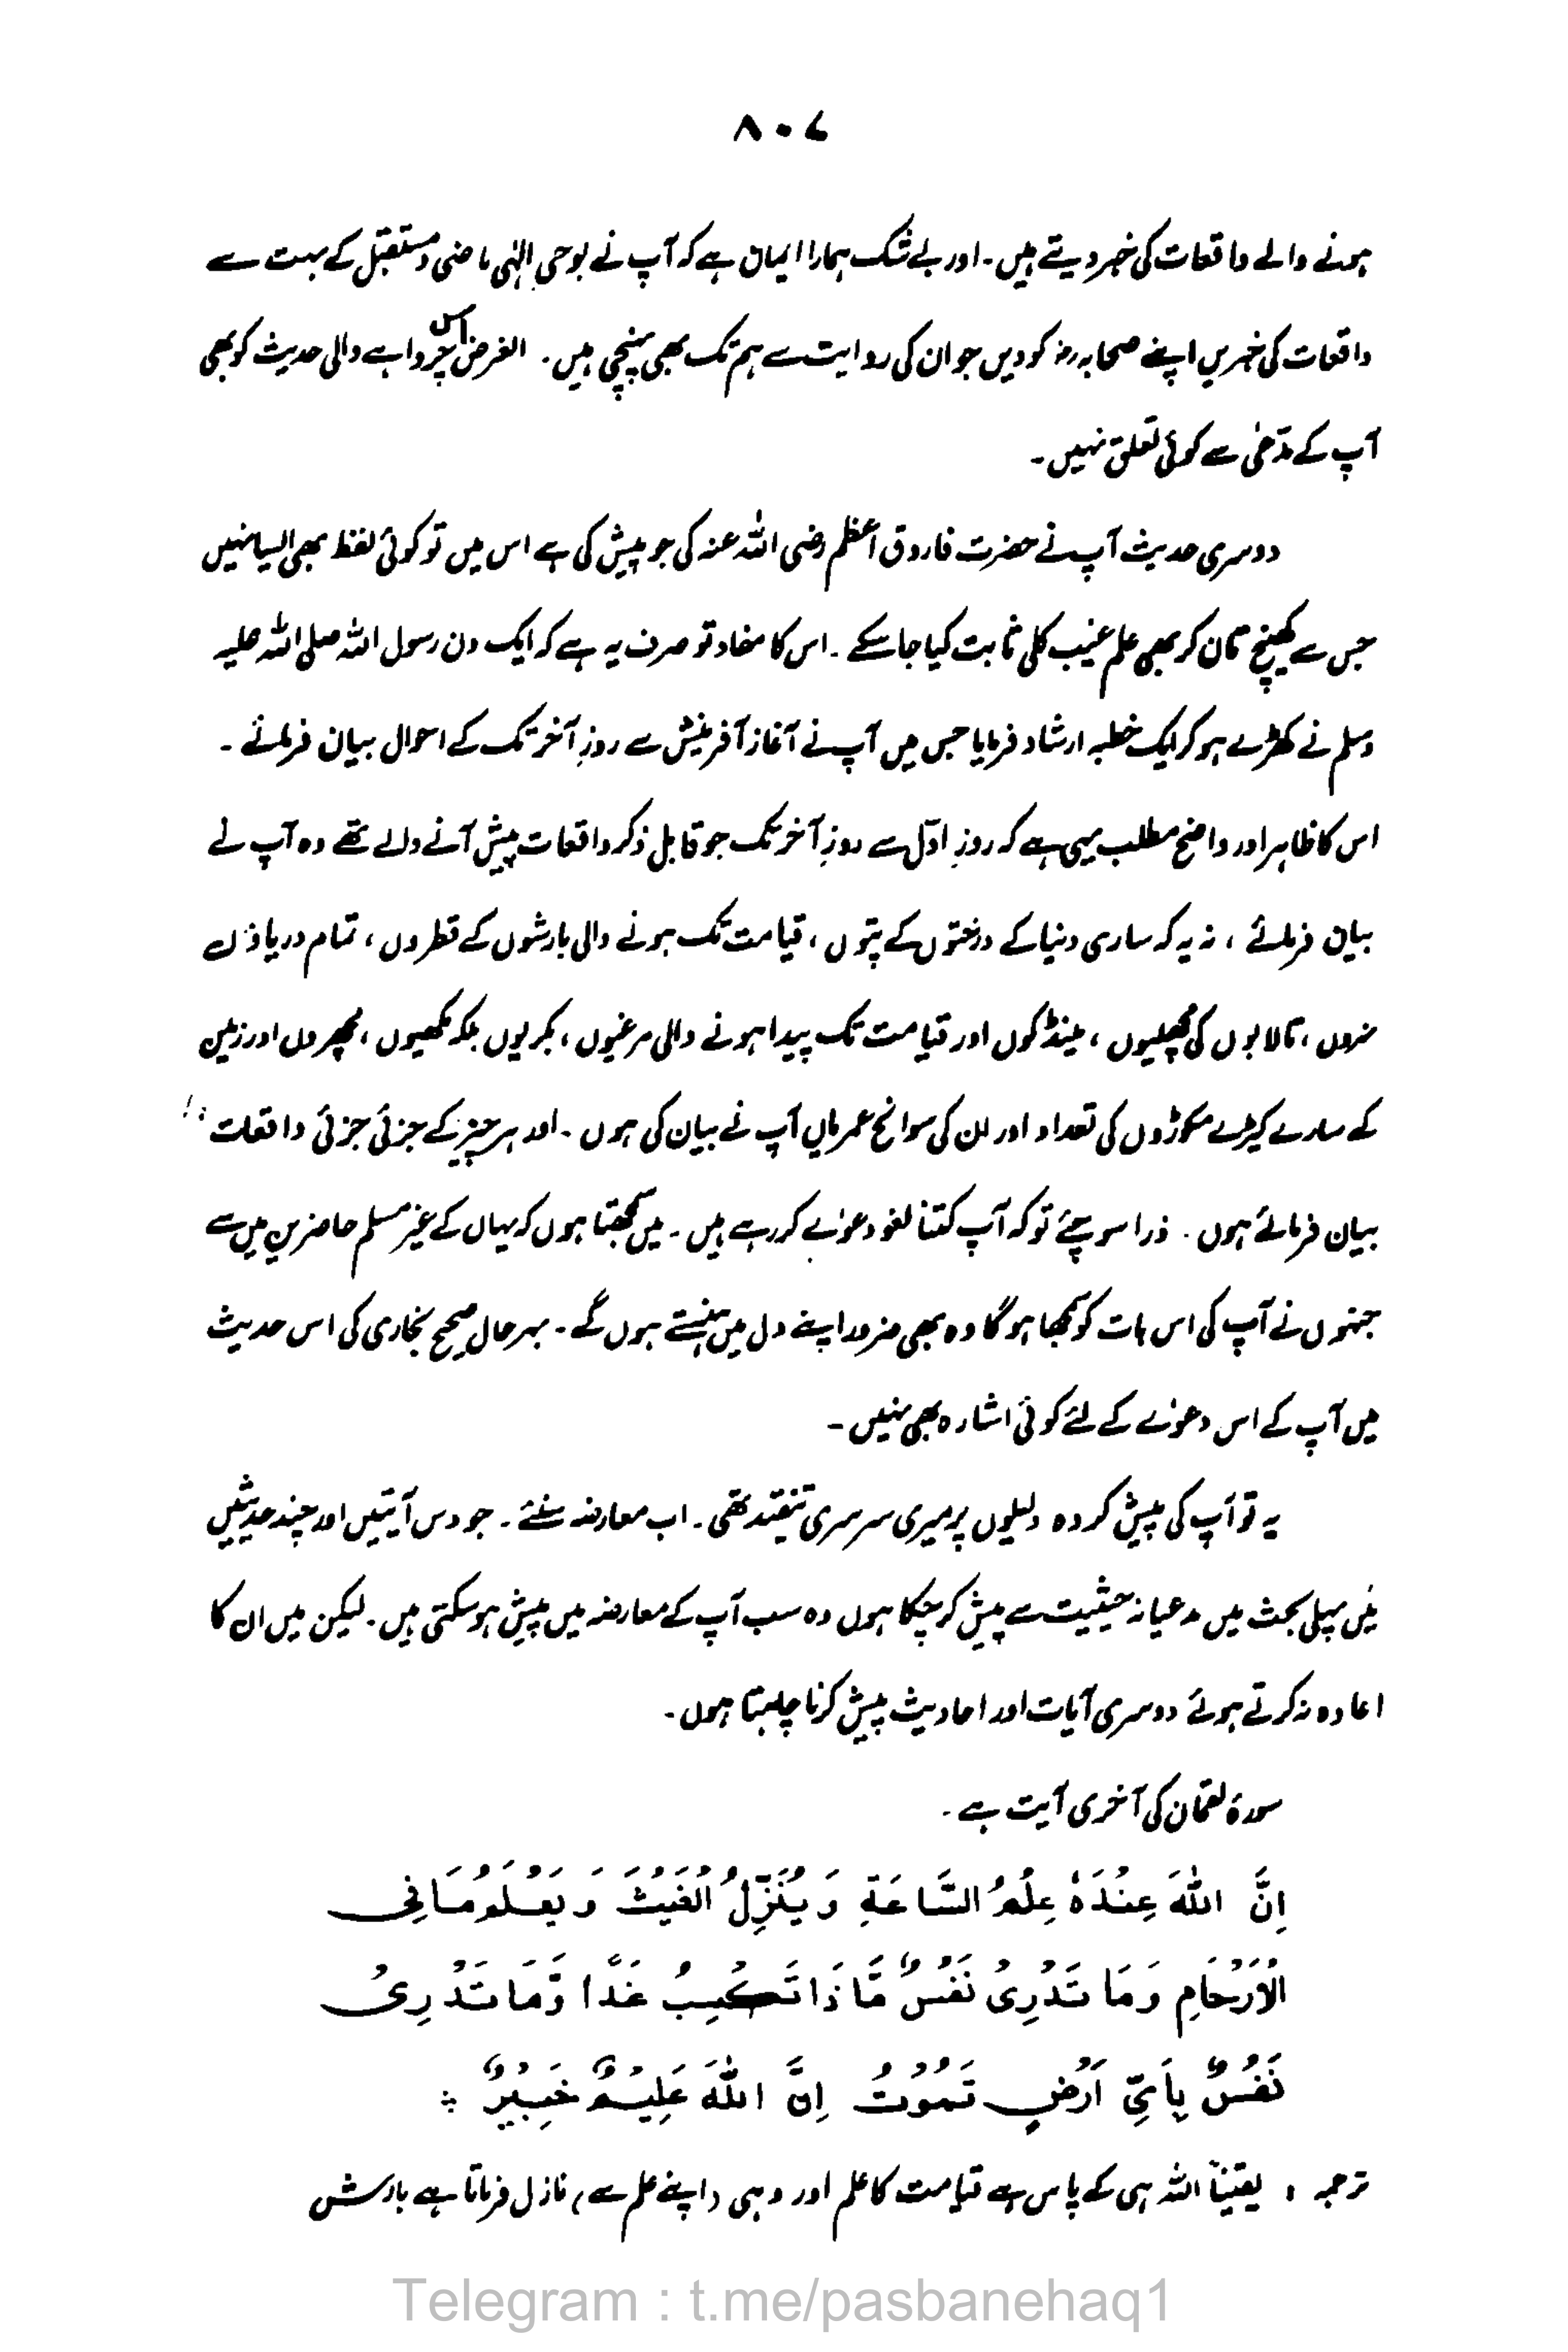 ۸۰۷
ہونے والے واقعات کی خبر دیتے ہیں۔ اور بے شک ہمارا ایمان ہے کہ آپ نے بوحی الٰہی ماضی و مستقبل کے بہت سے
واقعات کی خبریں اپنے صحابہ رضؓ کو دیں جو ان کی روایت سے ہم تک بھی پہنچی ہیں۔ الغرض اس چرواہے والی حدیث کو بھی
آپ کے مدّعیٰ سے کوئی تعلق نہیں۔
دوسری حدیث آپ نے حضرت فاروق اعظم رضی اللہ عنہ کی جو پیش کی ہے اس میں تو کوئی لفظ بھی ایسا نہیں
جس سے کھینچ تان کر بھی علم غیب کلی ثابت کیا جا سکے۔ اس کا مفاد تو صرف یہ ہے کہ ایک دن رسول اللہ صلی اللہ علیہ
وسلم نے کھڑے ہو کر ایک خطبہ ارشاد فرمایا جس میں آپ نے آغاز آفرینش سے روزِ آخر تک کے احوال بیان فرمائے۔
اس کا ظاہر اور واضح مطلب یہی ہے کہ روزِ اوّل سے روزِ آخر تک جو قابل ذکر واقعات پیش آنے والے تھے وہ آپ نے
بیان فرمائے، نہ یہ کہ ساری دنیا کے درختوں کے پتوں، قیامت تک ہونے والی بارشوں کے قطروں، تمام دریاؤں
نہروں، تالابوں کی مچھلیوں، مینڈکوں اور قیامت تک پیدا ہونے والی مرغیوں، بکریوں بلکہ مکھیوں، مچھروں اور زمین
کے سارے کیڑے مکوڑوں کی تعداد اور ان کی سوانح عمریاں آپ نے بیان کی ہوں۔ اور ہر چیز کے جزئی جزئی واقعات
بیان فرمائے ہوں۔ ذرا سوچئے تو کہ آپ کتنا لغو دعوٰے کر رہے ہیں۔ میں سمجھتا ہوں کہ یہاں کے غیر مسلم حاضرین میں سے
جنہوں نے آپ کی اس بات کو سمجھا ہوگا وہ بھی ضرور اپنے دل میں ہنستے ہوں گے۔ بہرحال صحیح بخاری کی اس حدیث
میں آپ کے اس دعوٰے کے لئے کوئی اشارہ بھی نہیں۔
یہ تو آپ کی پیش کردہ دلیلوں پر میری سرسری تنقید تھی۔ اب معارضہ سنئے۔ جو دس آیتیں اور چند حدیثیں
میں پہلی بحث میں مدعیانہ حیثیت سے پیش کر چکا ہوں وہ سب آپ کے معارضہ میں پیش ہو سکتی ہیں۔ لیکن میں ان کا
اعادہ نہ کرتے ہوئے دوسری آیات اور احادیث پیش کرنا چاہتا ہوں۔
سورۂ لقمان کی آخری آیت ہے۔
اِنَّ اللّٰهَ عِنْدَهٗ عِلْمُ السَّاعَةِ وَ یُنَزِّلُ الْغَیْثَ وَ یَعْلَمُ مَا فِی
الْاَرْحَامِ وَمَا تَدْرِیْ نَفْسٌ مَّا ذَا تَکْسِبُ غَدًا وَّمَا تَدْرِیْ
نَفْسٌ بِاَیِّ اَرْضٍ تَمُوْتُ اِنَّ اللّٰهَ عَلِیْمٌ خَبِیْرٌ ؞
ترجمہ : یقیناً اللہ ہی کے پاس ہے قیامت کا علم اور وہی (اپنے علم سے) نازل فرماتا ہے بارش
Telegram : t.me/pasbanehaq1